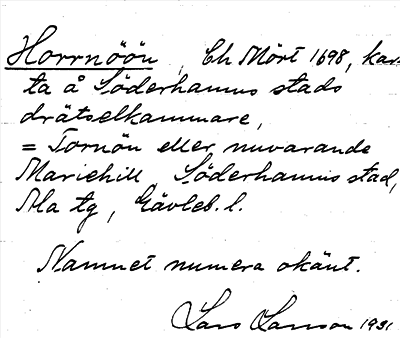 Horrnöön, Ch Mört 1698, kar-
ta å Söderhamns stads
drätselkammare,
= Tornön eller nuvarande
Mariehill, Söderhamns stad,
Ala tg, Gävleb. l.
Namnet numera okänt.
Lars Larsson 1931